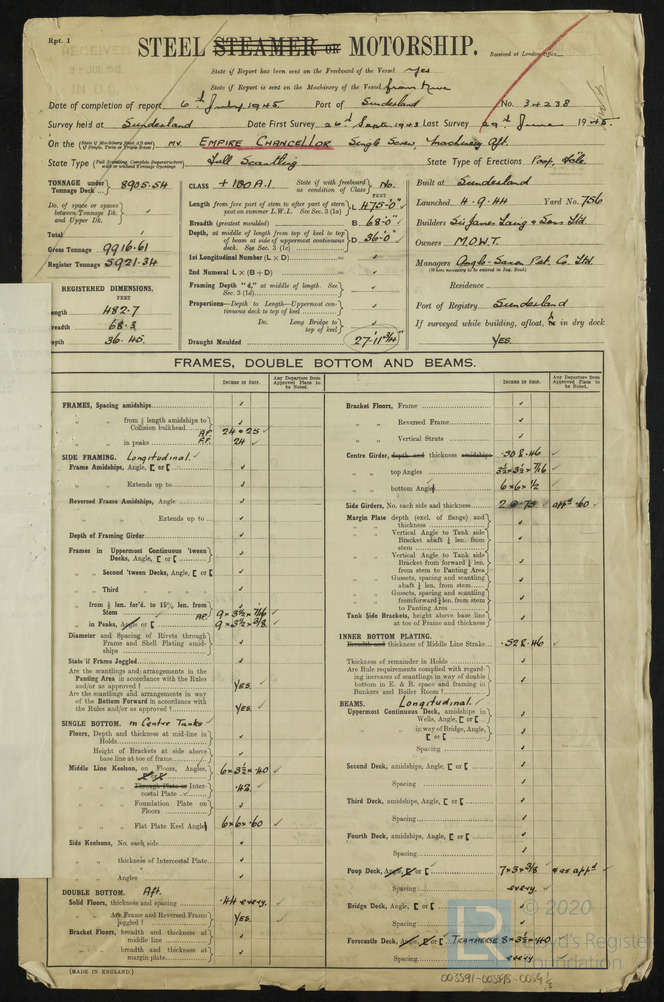 Rpt. 1
STEEL STEAMER OR MOTORSHIP.
Received at London Office
State if Report has been sent on the Freeboard of the Vessel Yes
State if Report is sent on the Machinery of the Vessel
Date of completion of report 6th July 1945 Port of Sunderland No. 34238
Survey held at Sunderland Date First Survey 24th Sept. 1943 Last Survey 29th June 1945
On the (State if Machinery fitted Aft and if Single, Twin or Triple Screw) MV. EMPIRE CHANCELLOR Single Screw, Machinery Aft.
State Type (Full Scantling, Complete Superstructure with or without Tonnage Openings) Full Scantling State Type of Erections Poop, Fo'c'le
TONNAGE under Tonnage Deck 8905.54
Do. of space or spaces between Tonnage Dk. and Upper Dk.
Total
Gross Tonnage 9916.61
Register Tonnage 5921.34
REGISTERED DIMENSIONS.
FEET
ength 482.7
readth 68.3
epth 36.45
CLASS +100 A.1. State if with freeboard as condition of Class No.
FEET
Length from fore part of stem to after part of stern post on summer L.W.L. See Sec. 3 (1a) L 475-0"
Breadth (greatest moulded) B 68-0"
Depth, at middle of length from top of keel to top of beam at side of uppermost continuous deck. See Sec. 3 (1c) D 36-0"
1st Longitudinal Number (L × D)
2nd Numeral L × (B + D)
Framing Depth "d," at middle of length. See Sec. 3 (1d)
Proportions—Depth to Length—Uppermost continuous deck to top of keel
Do. Long Bridge to top of keel
Draught Moulded 27'-11 3/4"
Built at Sunderland
Launched 4.9.44 Yard No. 756
Builders Sir James Laing & Sons Ltd
Owners M.O.W.T.
Managers Anglo-Saxon Pet. Co. Ltd.
(Where necessary to be entered in Reg. Book)
Residence
Port of Registry Sunderland
If surveyed while building, afloat, & in dry dock
YES.
FRAMES, DOUBLE BOTTOM AND BEAMS.
INCHES IN SHIP.
Any Departure from Approved Plans to be Noted.
FRAMES, Spacing amidships
" " from ¾ length amidships to Collision bulkhead
" " in peaks A.P. 24 & 25 F.P. 24
SIDE FRAMING. Longitudinal.
Frame Amidships, Angle, [ or [
" " Extends up to
Reversed Frame Amidships, Angle
" " Extends up to
Depth of Framing Girder
Frames in Uppermost Continuous 'tween Decks, Angle, [ or [
" " Second 'tween Decks, Angle, [ or [
" " Third
" " from ¾ len. for'd. to 15% len. from Stem
" " in Peaks, Angle or [ A.P. 9 × 3½ × 7/16
9 × 3½ × 3/8
Diameter and Spacing of Rivets through Frame and Shell Plating amidships
State if Frame Joggled
Are the scantlings and arrangements in the Panting Area in accordance with the Rules and/or as approved ? YES.
Are the scantlings and arrangements in way of the Bottom Forward in accordance with the Rules and/or as approved ? YES.
SINGLE BOTTOM. in Centre Tanks
Floors, Depth and thickness at mid-line in Holds
Height of Brackets at side above base line at toe of frame
Middle Line Keelson, on Floors, Angles, 6 × 3½ × .40
" " Through Plate or Intercostal Plate .42
" " Foundation Plate on Floors
" " Flat Plate Keel Angles 6 × 6 × .60
Side Keelsons, No. each side
" " thickness of Intercostal Plate
" " Angles
DOUBLE BOTTOM. Aft.
Solid Floors, thickness and spacing .44 every.
" " Are Frame and Reversed Frame joggled ? YES.
Bracket Floors, breadth and thickness at middle line
" " breadth and thickness at margin plate
(MADE IN ENGLAND.)
INCHES IN SHIP.
Any Departure from Approved Plans to be Noted.
Bracket Floors, Frame
" " Reversed Frame
" " Vertical Struts
Centre Girder, depth and thickness amidships .50 & .46
" " top Angles 3½ × 3½ × 7/16
" " bottom Angles 6 × 6 × ½
Side Girders, No. each side and thickness 2 @ .75 appd .60
Margin Plate depth (excl. of flange) and thickness
" " Vertical Angle to Tank side Bracket abaft ¼ len. from stem
" " Vertical Angle to Tank side Bracket from forward ¼ len. from stem to Panting Area
" " Gussets, spacing and scantling abaft ¼ len. from stem
" " Gussets, spacing and scantling from forward ¼ len. from stem to Panting Area
Tank Side Brackets, height above base line at toe of Frame and thickness
INNER BOTTOM PLATING.
Breadth and thickness of Middle Line Strake .52 & .46
Thickness of remainder in Holds
Are Rule requirements complied with regarding increases of scantlings in way of double bottom in E. & B. space and framing in Bunkers and Boiler Room ?
BEAMS. Longitudinal.
Uppermost Continuous Deck, amidships in Wells, Angle, [ or [
" " in way of Bridge, Angle, [ or [
" " Spacing
Second Deck, amidships, Angle, [ or [
Spacing
Third Deck, amidships, Angle, [ or [
Spacing
Fourth Deck, amidships, Angle, [ or [
Spacing
Poop Deck, Angle, [ or [ 7 × 3 × 3/8 as appd
Spacing every.
Bridge Deck, Angle, [ or [
Spacing
Forecastle Deck, Angle, [ or [ TRANSVERSE 8 × 3½ × .40
Spacing every
© 2020
Lloyd's Register
Foundation
003591-003598-0059 ½